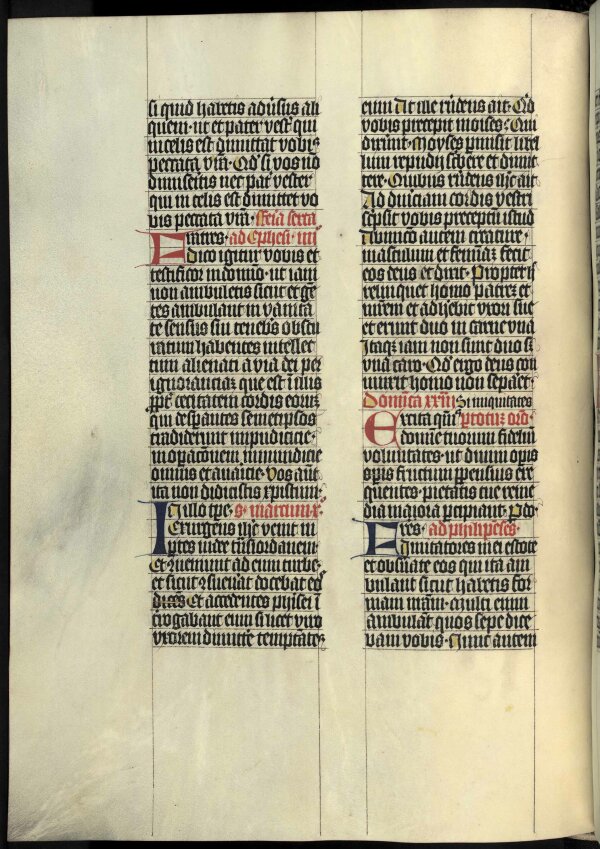 si quid habetis adūsus ali
quem · ut et pater vestꝰ qui
in celis est dimittat vobis
peccata vr̄a · Qd̄ si vos nō
dimiseritis nec patꝰ vester
qui in celis est dimittet vo
bis peccata vr̄a · Feīa sexta
Fratres · ad Ephesi · iiij
Dico igitur vobis et
testificor in domīo · ut iam
non ambuletis sicut et gē
tes ambulant in vanita
te sensus sui tenebris obscu
ratum habentes intellec
tum alienati a via dei per
ignoranciaꝫ que est ī illis
ꝓpt̄ cecitatem cordis eoruꝫ
qui desꝑantes semetipsos
tradiderunt impudicicie ·
in oꝑacōnem inmundicie
omnis et avar̄icie · Vos aūt
ita non didicistis xp̄istum ·
In illo tꝑe · s · marcum · x ·
Exurgens ih̄c venit in
ꝑtes iudee tūsiordanem
Et ꝯuenīunt ad eum turbe ·
et sicut ꝯsuevat docebat eos
dicēs Et accedentes pharisei ī
trogabant eum si licet viro
vxorem dimittē temptātes
eum At ille rn̄dens ait · Qd̄
vobis precepit moises? Qui
dixerunt · Moyses ꝑmisit libel
lum repudij scribere et dimit
tere · Quibus rn̄dens ih̄c ait
Ad duriciam cordis vestri
scripsit vobis preceptū istud
Ab inicio autem creature ·
masculum et feminaꝫ fecit
eos deus et dixit · Propter h̄
relinquet homo patreꝫ et
mr̄em et adhebit vxori sue
et erunt duo in carne vna
Itaqꝫ iam non sunt duo sꝫ
vna caro · Qd̄ ergo deus con
iunxit homo non sepaꝛet ·
Domīca xxiij Si iniquitates
Excita qs̄ · tocius ord ·
domīe tuorum fideliū
voluntates · ut divini opis
opis fructum ꝓpensius exe
quentes · pietatis tue reme
dia maiora ꝑcipiant · Per ·
Fres · ad philipēses ·
Imitatores mei estote
et obsūate eos qui ita am
bulant sicut habetis for
mam nr̄am · Multi enim
ambulāt quos sepe dice
bam vobis · Nunc autem